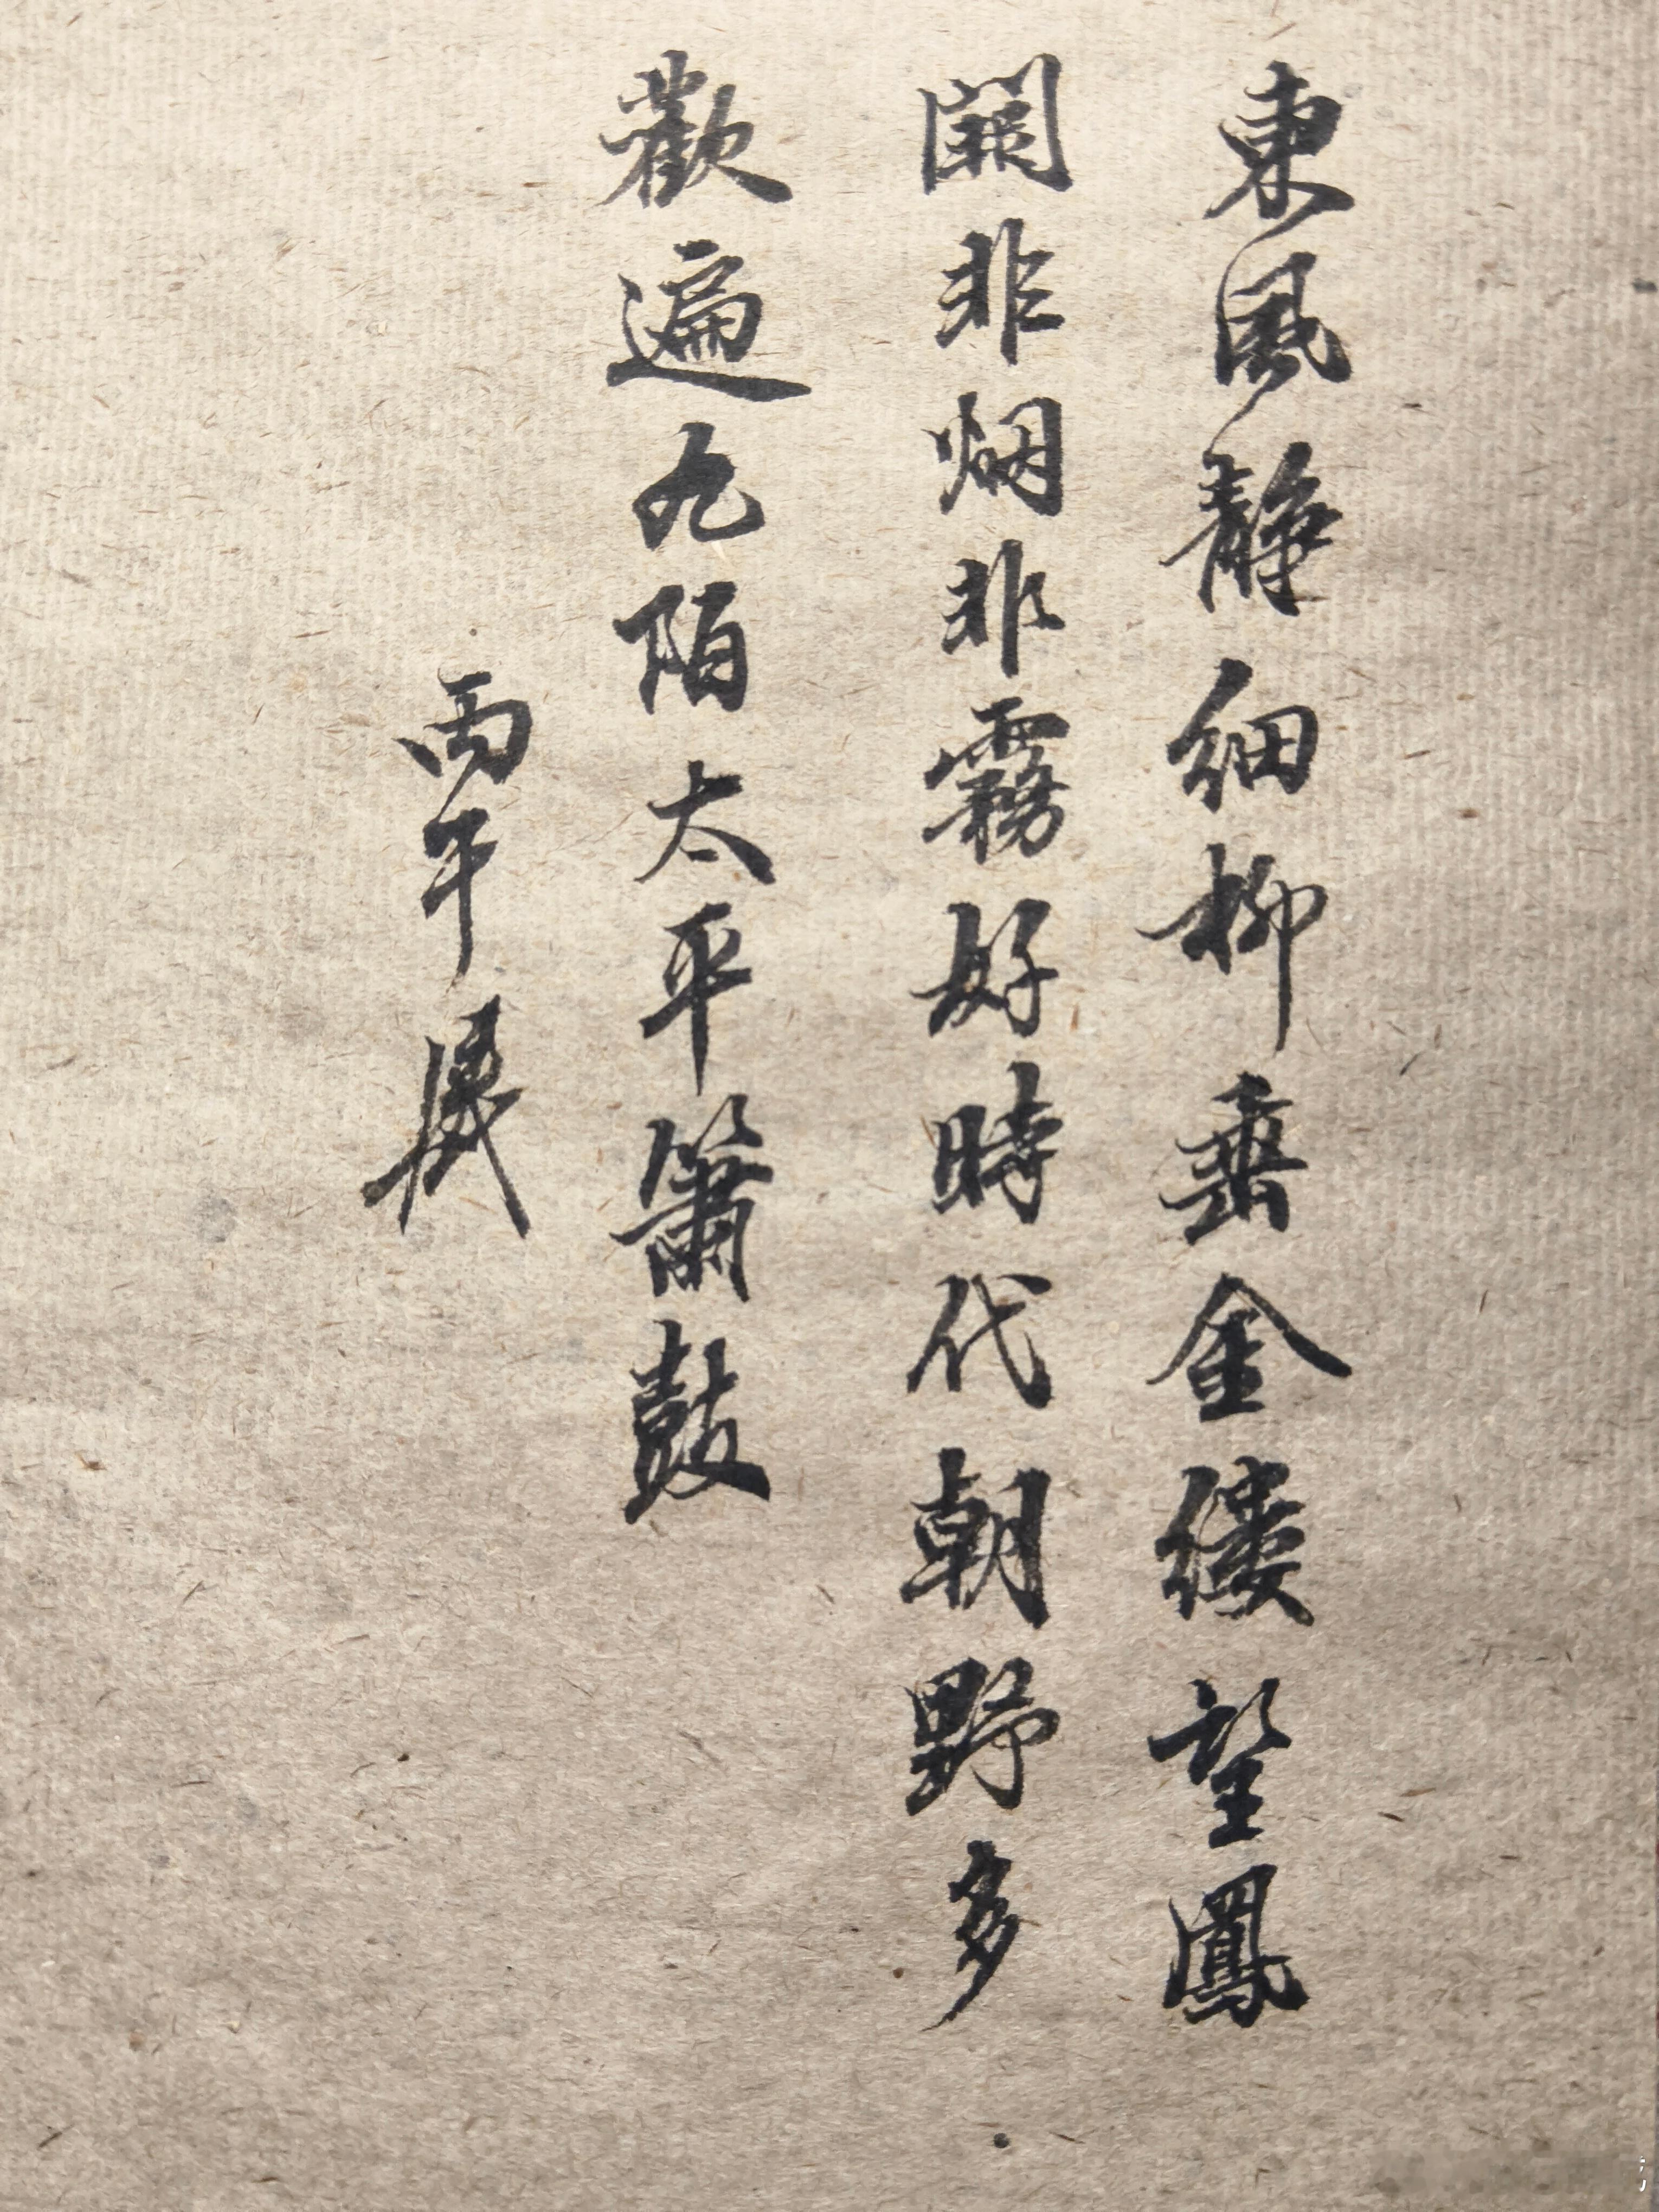 東風靜細柳垂金縷望鳳
闕非烟非霧好時代朝野多
歡遍九陌太平簫鼓
丙午